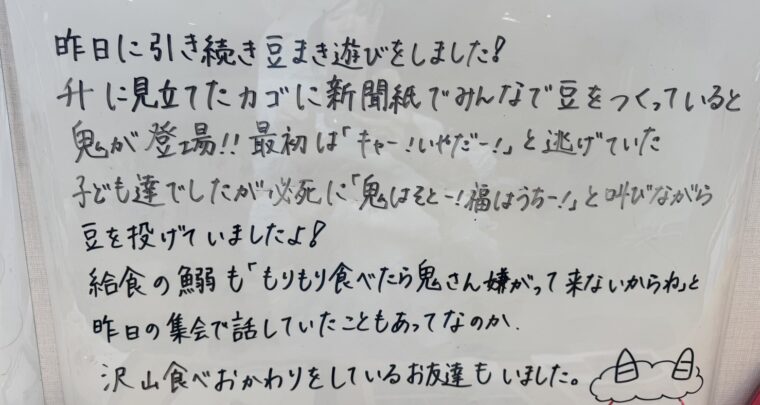 昨日に引き続き豆まき遊びをしました!
升に見立てたカゴに新聞紙でみんなで豆をつくっていると
鬼が登場!!最初は「キャー!いやだー!」と逃げていた
子ども達でしたが必死に「鬼はそとー!福はうちー!」と叫びながら
豆を投げていましたよ!
給食の鰯も「もりもり食べたら鬼さん嫌がって来ないからね」と
昨日の集会で話していたこともあってなのか、
沢山食べおかわりをしているお友達もいました。